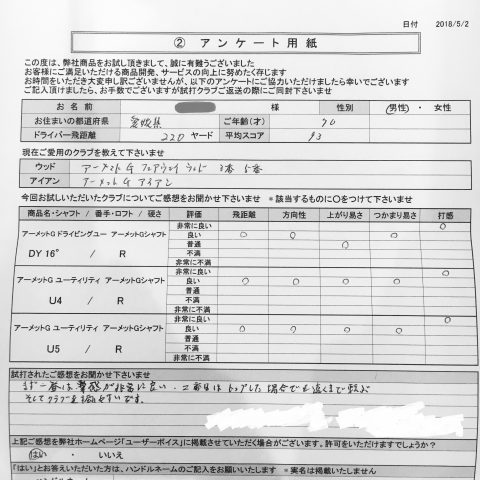 日付 2018/5/2
② アンケート用紙
この度は、弊社商品をお試し頂きまして、誠に有難うございました
お客様にご満足いただける商品開発、サービスの向上に努めたく存じます
お時間をいただき大変申し訳ございませんが、以下のアンケートにご協力いただけましたら幸いでございます
ご記入頂けましたら、お手数でございますが試打クラブご返送の際にご同封下さいませ
お 名 前 様 性別 男性 ・ 女性
お住まいの都道府県 愛媛県 ご年齢(才) 70
ドライバー飛距離 220 ヤード 平均スコア 93
現在ご愛用のクラブを教えて下さいませ
ウッド アーメットG フェアウェイウッド 3番 5番
アイアン アーメットG アイアン
今回お試しいただいたクラブについてご感想をお聞かせ下さいませ *該当するものに○をつけて下さいませ
商品名・シャフト / 番手・ロフト / 硬さ 評価 飛距離 方向性 上がり易さ つかまり易さ 打感
アーメットG ドライビングユー アーメットGシャフト
DY 16° / R
非常に良い ○
良い ○ ○ ○
普通 ○
不満
非常に不満
アーメットG ユーティリティ アーメットGシャフト
U4 / R
非常に良い ○
良い ○ ○ ○ ○
普通
不満
非常に不満
アーメットG ユーティリティ アーメットGシャフト
U5 / R
非常に良い ○
良い ○ ○ ○ ○
普通
不満
非常に不満
試打されたご感想をお聞かせ下さいませ
まず一番は打感が非常に良い、二番目はトップした場合でも遠くまで飛ぶ
そしてクラブを振りやすいです。
上記ご感想を弊社ホームページ「ユーザーボイス」に掲載させていただく場合がございます。許可をいただけますでしょうか?
はい ・ いいえ
「はい」とお答えいただいた方は、ハンドルネームのご記入をお願いいたします *実名は掲載いたしません